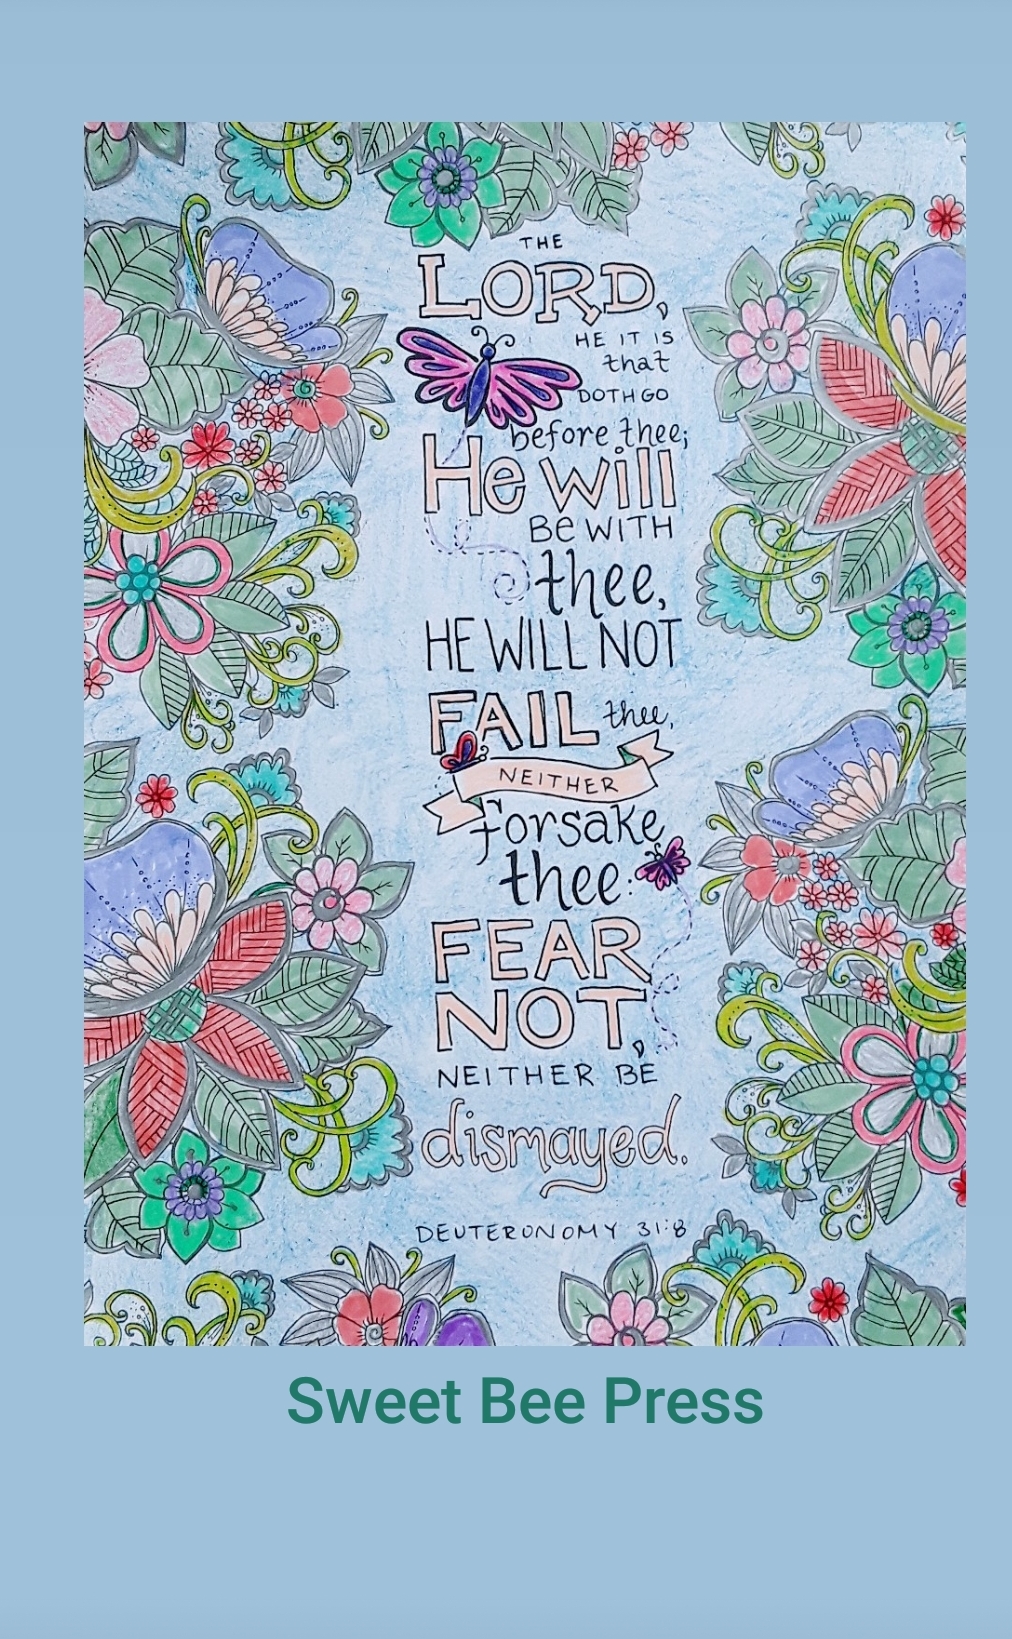 THE
LORD,
HE IT IS
that
DOTH GO
before thee;
He will
BE WITH
thee,
HE WILL NOT
FAIL thee,
NEITHER
forsake
thee:
FEAR
NOT,
NEITHER BE
dismayed.
DEUTERONOMY 31:8
Sweet Bee Press